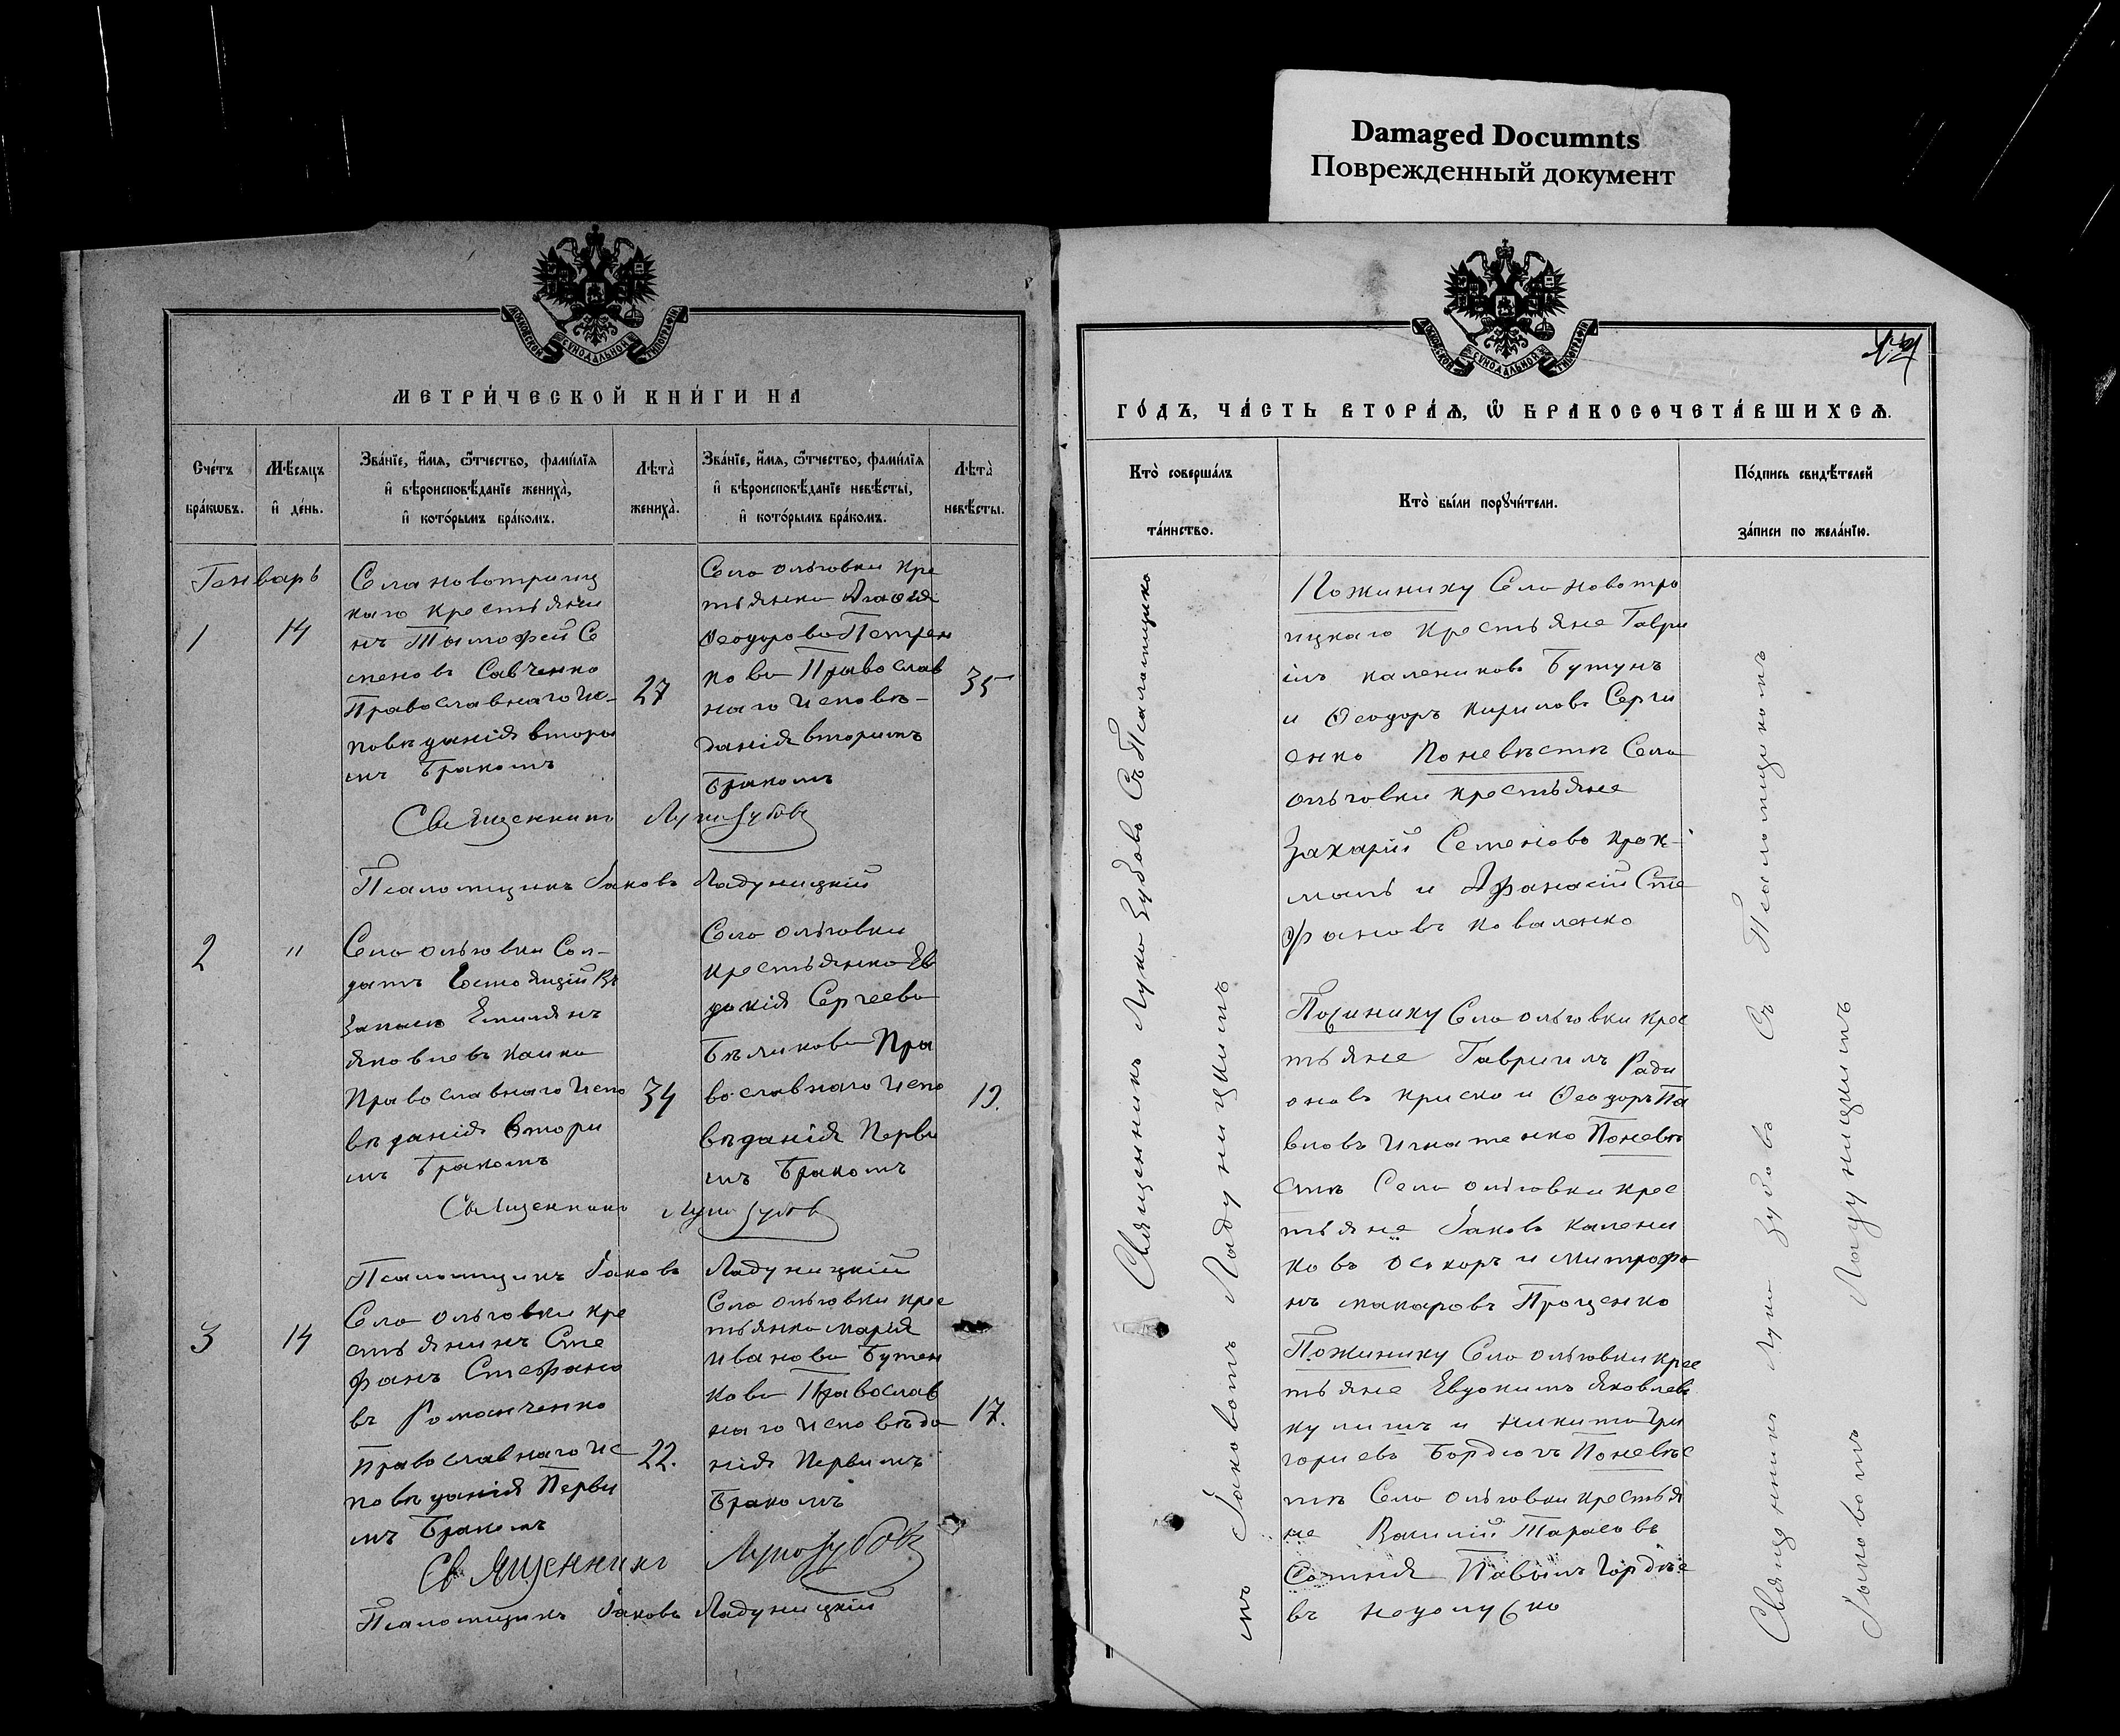 Damaged Documnts
Поврежденный документ
МОСКОВСКОЙ СѴНОДАЛЬНОЙ ТИПОГРАФІИ
МЕТРИ́ЧЕСКОЙ КНИ́ГИ НА
Сче́тъ бра́кѡвъ.
Мѣ́сяцъ и҆ де́нь.
Зва́нїе, и҆́мѧ, ѻ҆́тчество, фами́лїѧ
и҆ вѣроисповѣ́данїе жениха̀,
и҆ кото́рымъ бра́комъ.
Лѣта̀ жениха̀.
Зва́нїе, и҆́мѧ, ѻ҆́тчество, фами́лїѧ
и҆ вѣроисповѣ́данїе невѣ́сты,
и҆ кото́рымъ бра́комъ.
Лѣта̀ невѣ́сты.
Генварь
1
14
Села новотроиц
каго крестьяни
нъ Тымофей Се
меновъ Савченко
Православнаго Ис-
повѣданія вторы
мъ Бракомъ
27
Села ольговки кре
тьянка Агафія
Ѳеодорова Петрен
кова Православ
наго исповѣ-
данія вторимъ
Бракомъ
35
Священникъ Лука Зубовъ
Псаломщикъ Іаковъ Ладуницкій
2
"
Села ольговки Сол-
датъ Состоящій Въ
Запасѣ Емиліянъ
Яковлевъ
Православнаго Испо
вѣданія Втори
мъ Бракомъ
34
Села Ольговки
крестьянка Ев
докія Сергеева
Бѣликова Пра
вославнаго испо
вѣданія Перви
мъ Бракомъ
19.
Священникъ Лука Зубовъ
Псаломщикъ Іаковъ Ладуницкій
3
14
Села Ольговки кре
стьянинъ Сте
фанъ Стефано
въ Романченко
Православнаго Ис
повѣданія Перви
мъ Бракомъ
22.
Села Ольговки крес
тьянка марія
Иванова Бутен
кова Православ
наго исповѣда
нія Первимъ
Бракомъ
17.
Священникъ Лука Зубовъ
Псаломщикъ Іаковъ Ладуницкій
МОСКОВСКОЙ СѴНОДАЛЬНОЙ ТИПОГРАФІИ
ГО́ДЪ, ЧА́СТЬ ВТОРА́Ѧ, Ѽ БРАКОСОЧЕТА́ВШИХСѦ.
Кто̀ соверша́лъ
та́инство.
Кто̀ бы́ли порꙋчи́тели.
По́дпись свидѣ́телей
за́писи по жела́нїю.
Священникъ Лука Зубовъ Съ Псаломщико
мъ Іаковомъ Ладуницкимъ
Пожениху Села новотро
ицкаго крестьяне Гаври
илъ калениковъ Бутунъ
и Ѳеодоръ Кириловъ Серги
енко Поневѣстѣ Села
ольговки крестьяне
Захарій Семеновъ Крох-
маль и Афанасій Сте
фановъ коваленко
Пожениху Села ольговки крес
тьяне Гавриилъ Ради
оновъ криско и Ѳеодоръ Па
вловъ Игнатенко Поневѣ
стѣ Села ольговки крес
тьяне Іаковъ калени
ковъ и митрофа
нъ макаровъ Проценко
Пожениху Села ольговки крес
тьяне Евдокимъ Яковлевъ
кулишъ и никита Гри
гориевъ Бордюгъ Поневѣс
тѣ Села ольговки крестья
не Василій Тарасовъ
Сотния Павылъ Гордѣе
въ
Священникъ Лука Зубовъ Съ Псаломщикомъ
Іаковомъ Ладуницкимъ